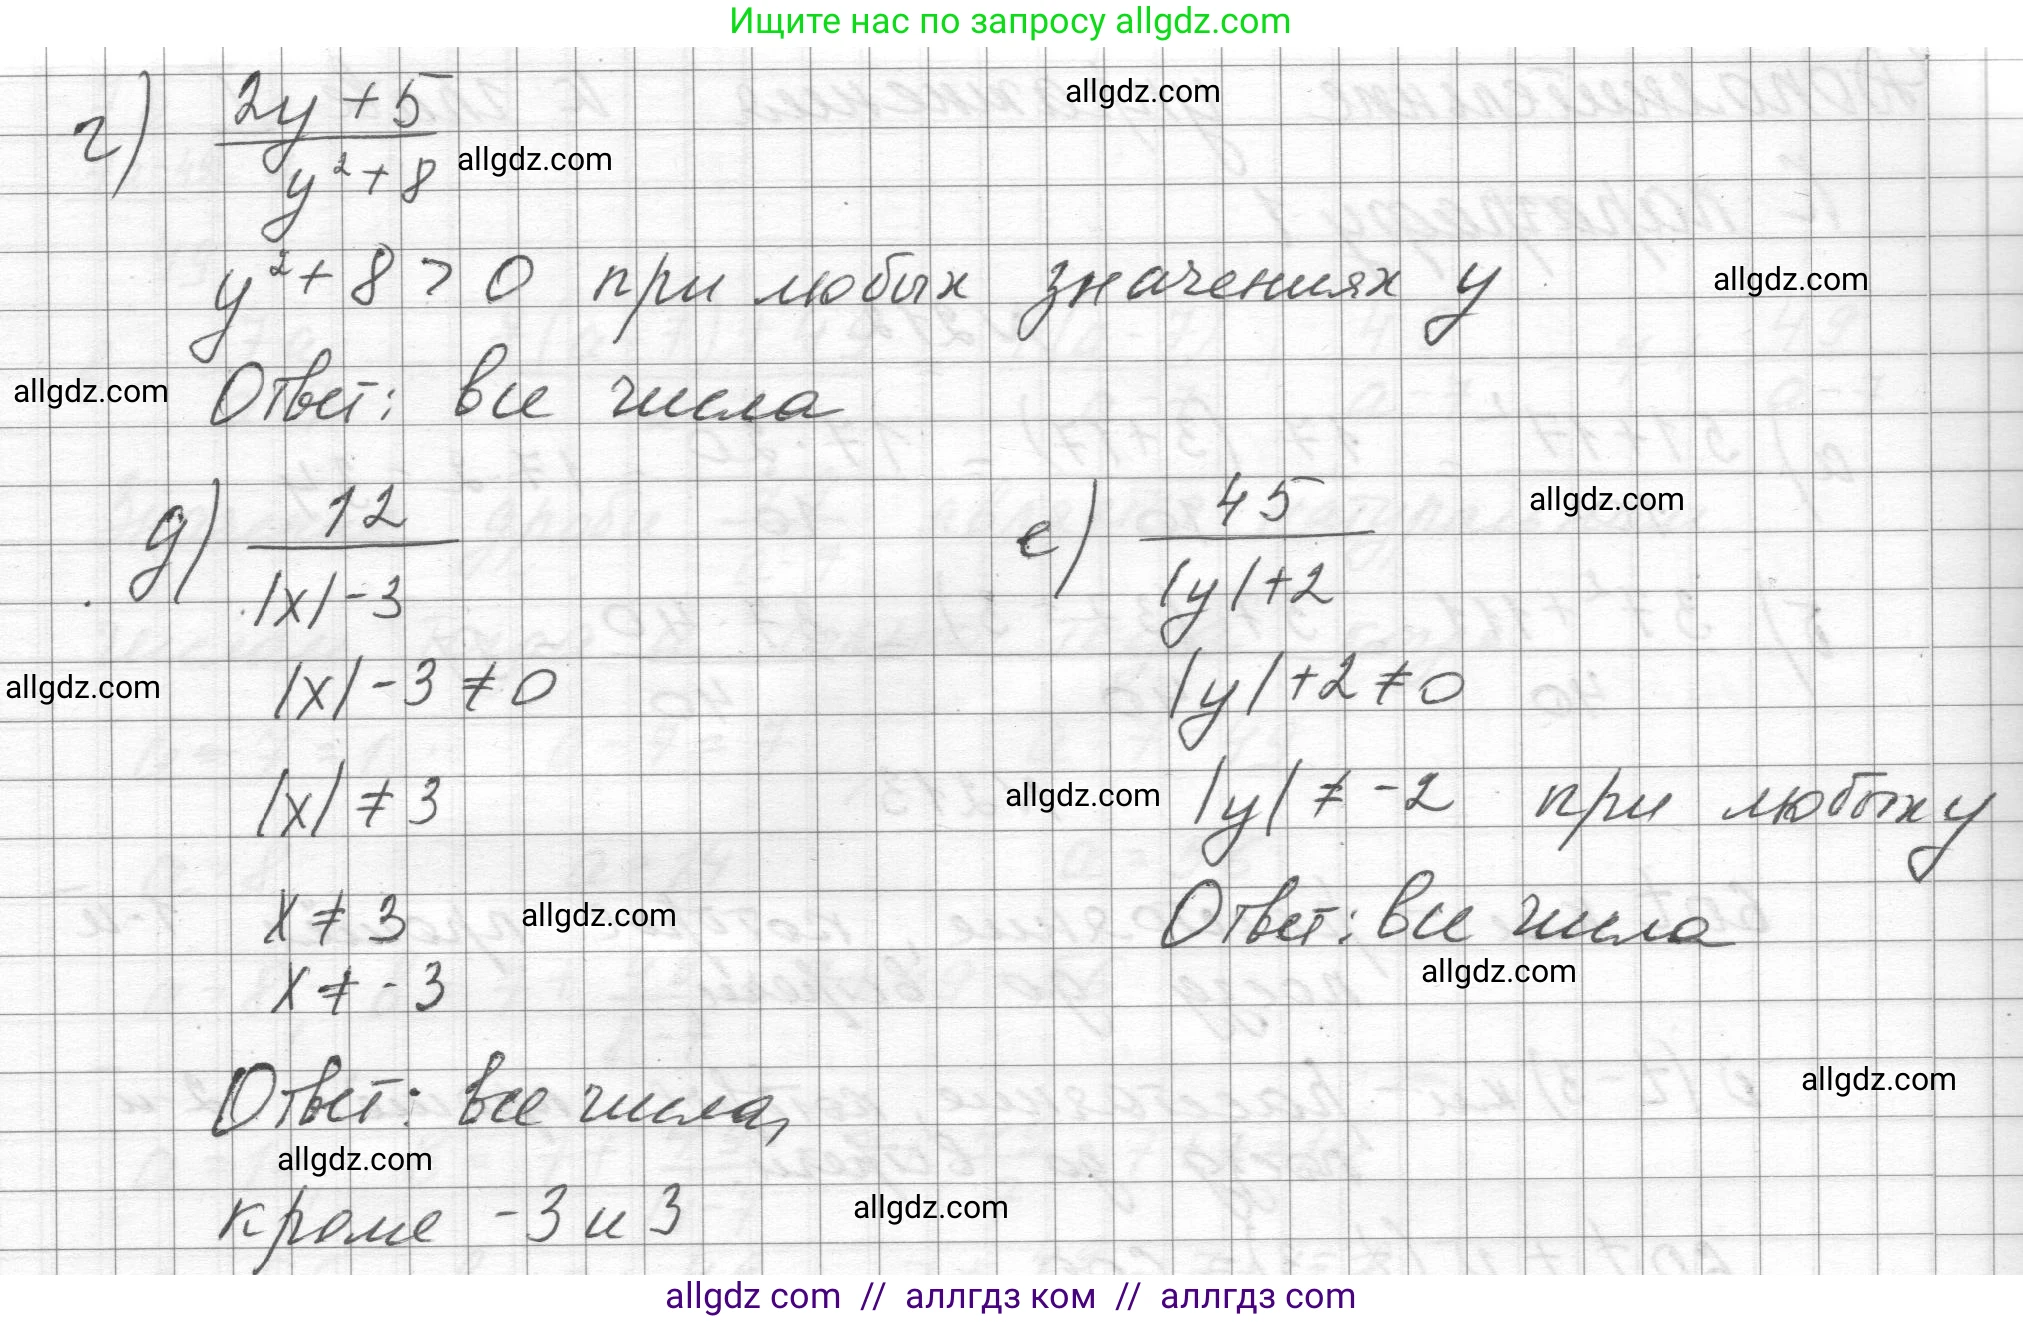 Ищите нас по запросу allgdz.com
allgdz.com
г) 2y + 5
y² + 8
allgdz.com
y² + 8 > 0 при любых значениях y
allgdz.com
allgdz.com
Ответ: все числа
д) 12
|x| - 3
е) 45
|y| + 2
allgdz.com
allgdz.com
|x| - 3 ≠ 0
|y| + 2 ≠ 0
|x| ≠ 3
allgdz.com
|y| ≠ -2 при любых y
x ≠ 3
allgdz.com
Ответ: все числа
allgdz.com
x ≠ -3
allgdz.com
Ответ: все числа,
allgdz.com
кроме -3 и 3
allgdz.com
allgdz com // аллгдз ком // аллгдз com